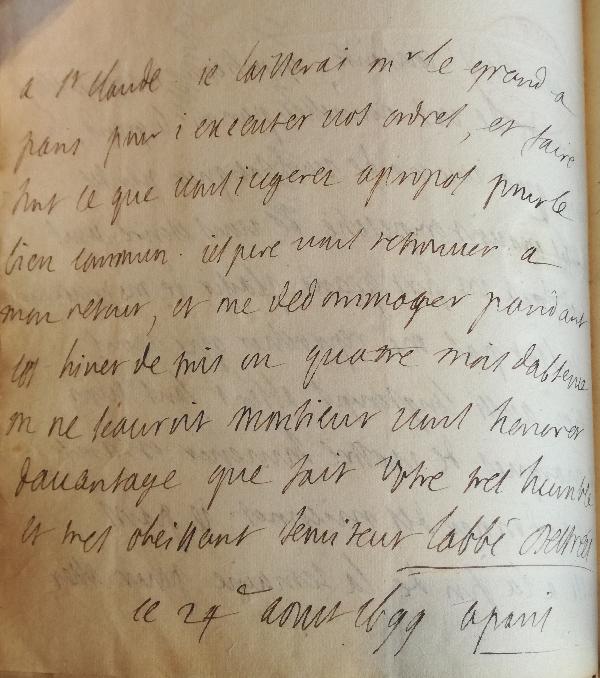 a st claude ie laisserai mr le grand a
paris pour i executer vos ordres, et faire
tout ce que vous iugerez apropos pour le
bien commun. iespere vous retrouuer a
mon retour, et me dedommager pandant
cet hiver de trois ou quatre mois dabsence
on ne scauroit monsieur vous honorer
dauantage que fait votre tres humble
et tres obeissant seruiteur labbé Destrées
ce 24e aoust 1699 a paris